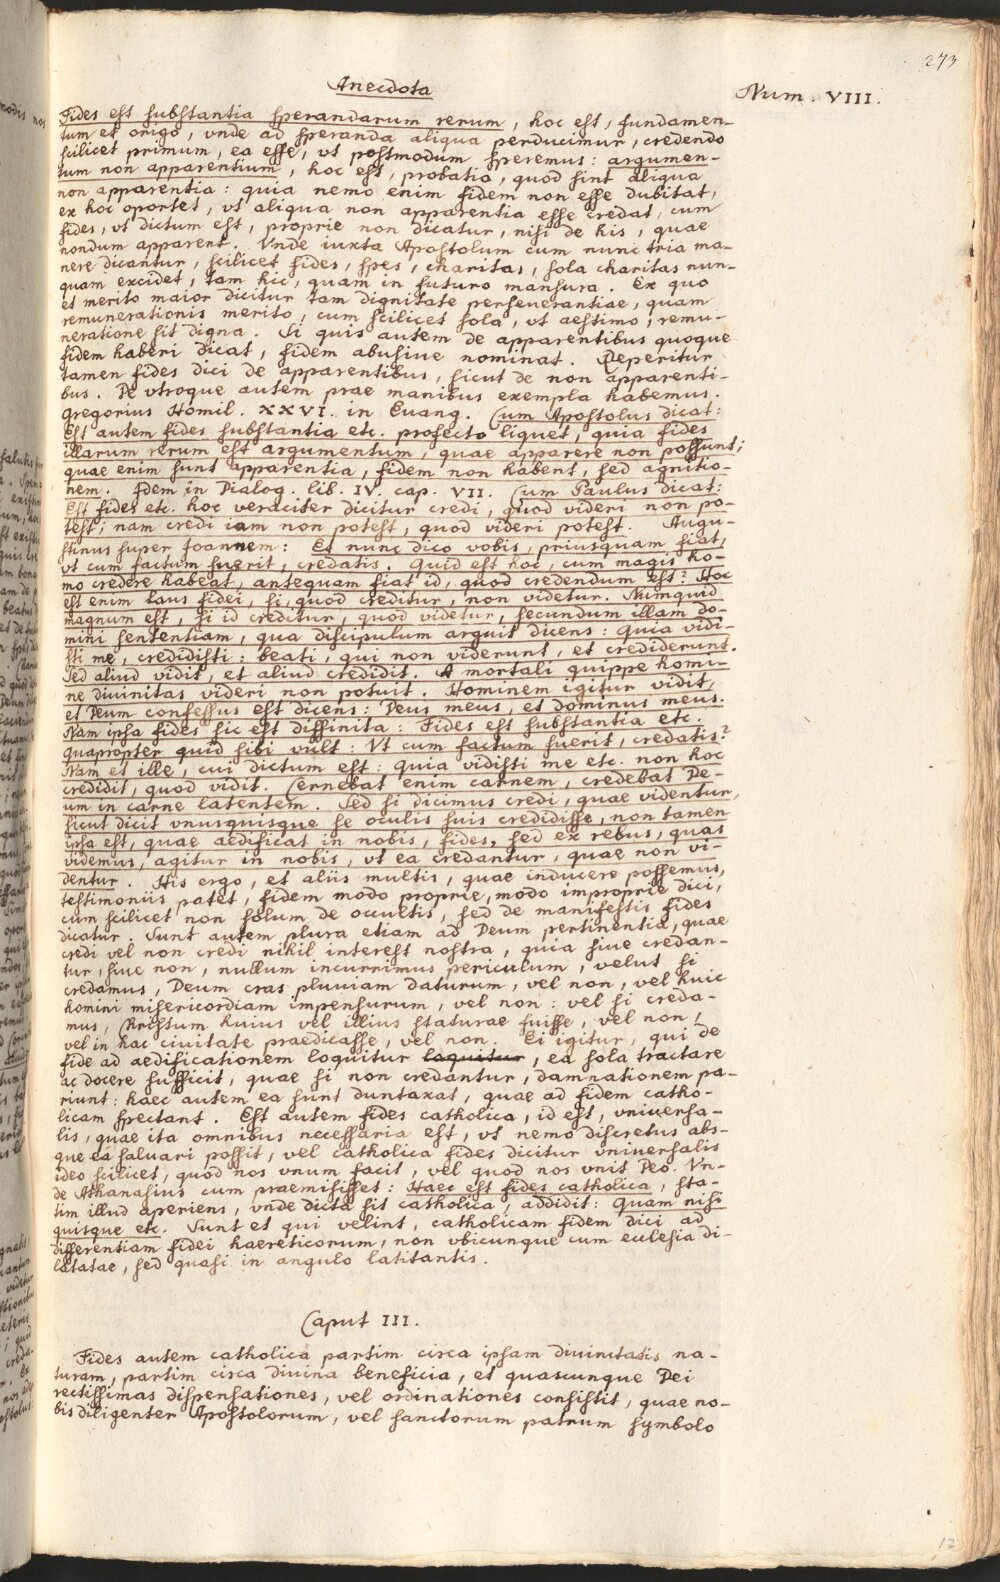 273
Anecdota
Num. VIII.
Fides est substantia sperandarum rerum, hoc est, fundamen-
tum et origo, vnde ad speranda aliqua perducimur, credendo
scilicet primum, ea esse, vt postmodum speremus: argumen-
tum non apparentium, hoc est, probatio, quod sint aliqua
non apparentia: quia nemo enim fidem non esse dubitat,
ex hoc oportet, vt aliqua non apparentia esse credat, cum
fides, vt dictum est, proprie non dicatur, nisi de his, quae
nondum apparent. Vnde iuxta Apostolum cum nunc tria ma-
nere dicantur, scilicet fides, spes, charitas, sola charitas nun-
quam excidet, tam hic, quam in futuro mansura. Ex quo
et merito maior dicitur tam dignitate perseuerantiae, quam
remunerationis merito, cum scilicet sola, vt aestimo, remu-
neratione sit digna. Si quis autem de apparentibus quoque
fidem haberi dicat, fidem abusiue nominat. Reperitur
tamen fides dici de apparentibus, sicut de non apparenti-
bus. De vtroque autem prae manibus exempla habemus.
Gregorius Homil. XXVI. in Euang. Cum Apostolus dicat:
Est autem fides substantia etc. profecto liquet, quia fides
illarum rerum est argumentum, quae apparere non possunt;
quae enim sunt apparentia, fidem non habent, sed agnitio-
nem. Idem in Dialog. lib. IV. cap. VII. Cum Paulus dicat:
Est fides etc. hoc veraciter dicitur credi, quod videri non po-
test; nam credi iam non potest, quod videri potest. Augu-
stinus super Joannem: Et nunc dico vobis, priusquam fiat,
vt cum factum fuerit, credatis. Quid est hoc, cum magis ho-
mo credere habeat, antequam fiat id, quod credendum est? Hoc
est enim laus fidei, si, quod creditur, non videtur. Numquid
magnum est, si id creditur, quod videtur, secundum illam do-
mini sententiam, qua discipulum arguit dicens: Quia vidi-
sti me, credidisti: beati, qui non viderunt, et crediderunt.
Sed aliud vidit, et aliud credidit. A mortali quippe homi-
ne diuinitas videri non potuit. Hominem igitur vidit,
et Deum confessus est dicens: Deus meus, et dominus meus.
Nam ipsa fides sic est diffinita: Fides est substantia etc.
quapropter quid sibi vult: Vt cum factum fuerit, credatis?
Nam et ille, cui dictum est: Quia vidisti me etc. non hoc
credidit, quod vidit. Cernebat enim carnem, credebat De-
um in carne latentem. Sed si dicimus credi, quae videntur,
sicut dicit vnusquisque se oculis suis credidisse, non tamen
ipsa est, quae aedificat in nobis, fides, sed ex rebus, quas
videmus, agitur in nobis, vt ea credantur, quae non vi-
dentur. His ergo, et aliis multis, quae inducere possemus,
testimoniis patet, fidem modo proprie, modo improprie dici,
cum scilicet non solum de occultis, sed de manifestis fides
dicatur. Sunt autem plura etiam ad Deum pertinentia, quae
credi vel non credi nihil interest nostra, quia siue credan-
tur, siue non, nullum incurrimus periculum, velut si
credamus, Deum cras pluuiam daturum, vel non, vel huic
homini misericordiam impensurum, vel non: vel si creda-
mus, Christum huius vel illius staturae fuisse, vel non,
vel in hac ciuitate praedicasse, vel non. Ei igitur, qui de
fide ad aedificationem loquitur loquitur, ea sola tractare
ac docere sufficit, quae si non credantur, damnationem pa-
riunt: haec autem ea sunt duntaxat, quae ad fidem catho-
licam spectant. Est autem fides catholica, id est, vniuersa-
lis, quae ita omnibus necessaria est, vt nemo discretus abs-
que ea saluari possit, vel catholica fides dicitur vniuersalis
ideo scilicet, quod nos vnum facit, vel quod nos vnit Deo. Vn-
de Athanasius cum praemisisset: Haec est fides catholica, sta-
tim illud aperiens, vnde dicta sit catholica, addidit: Quam nisi
quisque etc. Sunt et qui velint, catholicam fidem dici ad
differentiam fidei haereticorum, non vbicunque cum ecclesia di-
latatae, sed quasi in angulo latitantis.
Caput III.
Fides autem catholica partim circa ipsam diuinitatis na-
turam, partim circa diuina beneficia, et quascunque Dei
rectissimas dispensationes, vel ordinationes consistit, quae no-
bis diligenter Apostolorum, vel sanctorum patrum symbolo